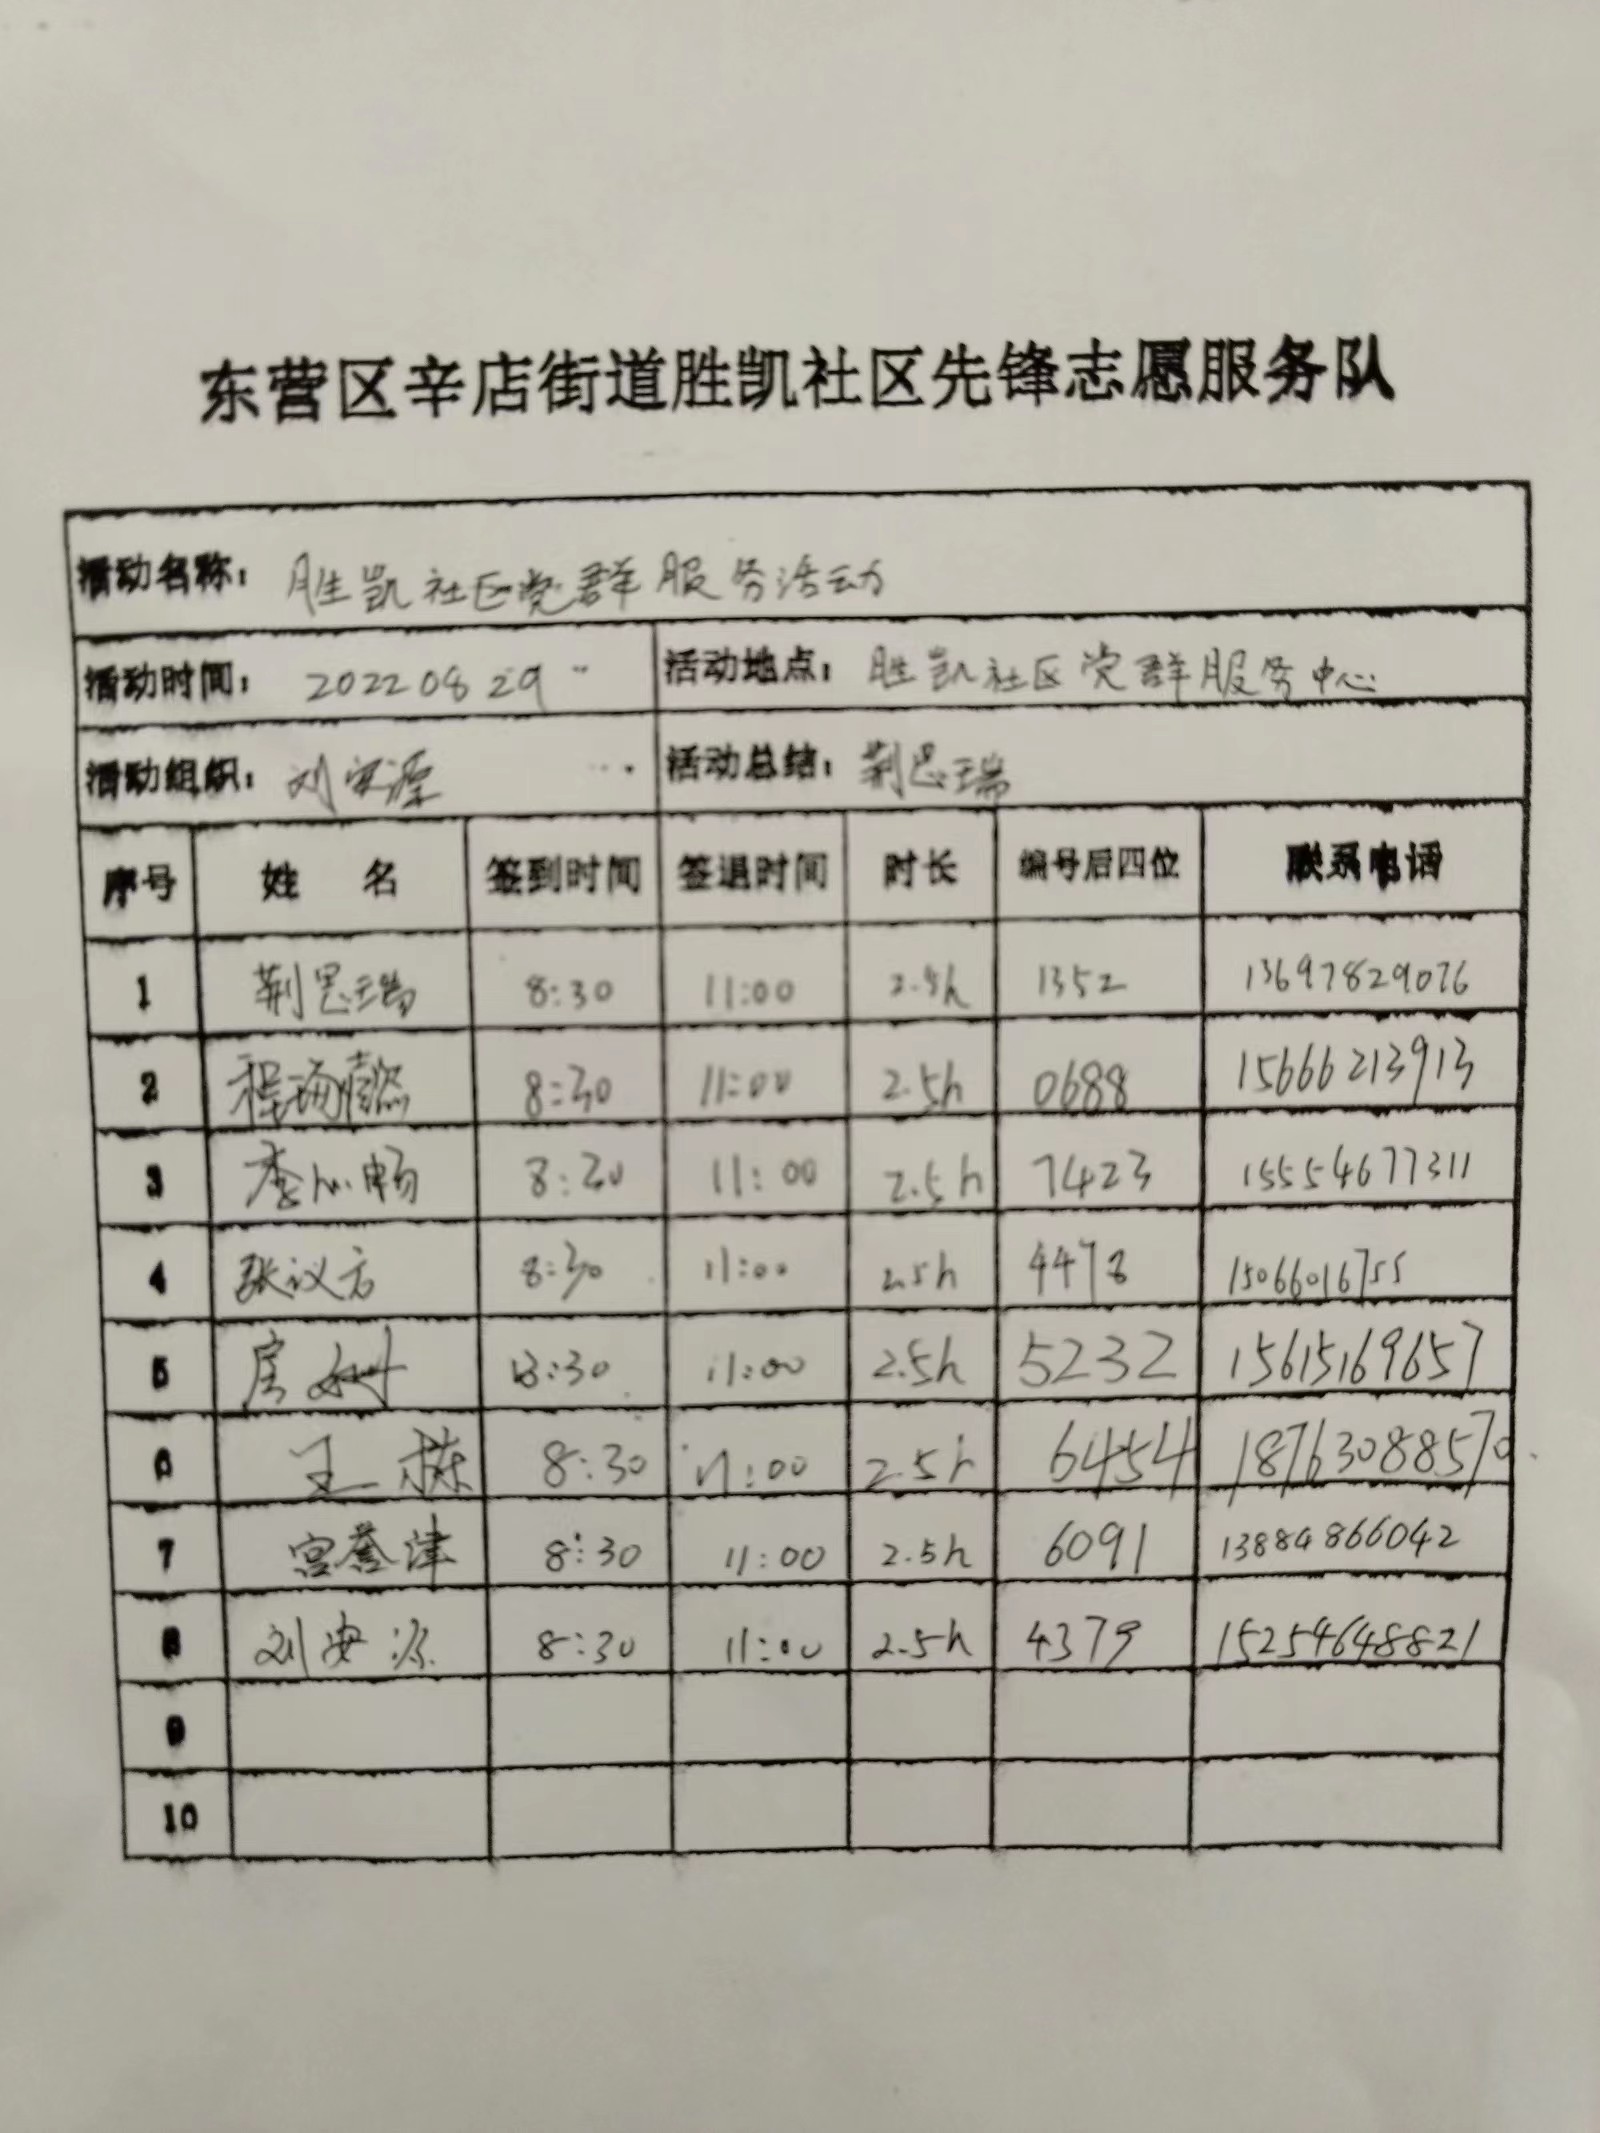 东营区辛店街道胜凯社区先锋志愿服务队
活动名称： 胜凯社区党群服务活动
活动时间： 20220829 活动地点： 胜凯社区党群服务中心
活动组织： 刘安源 活动总结： 荆思瑞
序号 姓 名 签到时间 签退时间 时长 编号后四位 联系电话
1 荆思瑞 8:30 11:00 2.5h 1352 13697829076
2 8:30 11:00 2.5h 0688 15666213913
3 李心畅 8:30 11:00 2.5h 7423 15554677311
4 张议方 8:30 11:00 2.5h 4478 15066016755
5 房 8:30 11:00 2.5h 5232 15615169657
6 王栋 8:30 11:00 2.5h 6454 18763088570
7 宫誉津 8:30 11:00 2.5h 6091 13884866042
8 刘安源 8:30 11:00 2.5h 4379 15254648821
9
10